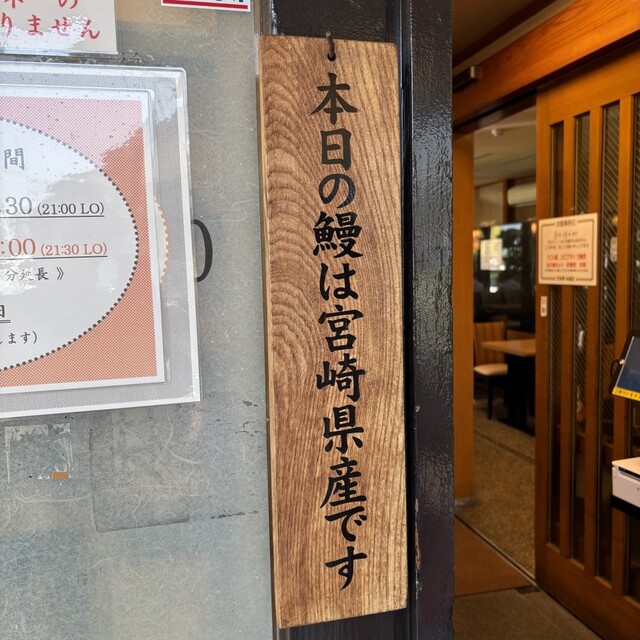 りません
間
.30 (21:00 LO)
:00 (21:30 LO)
分延長 》
日
ます)
本日の鰻は宮崎県産です